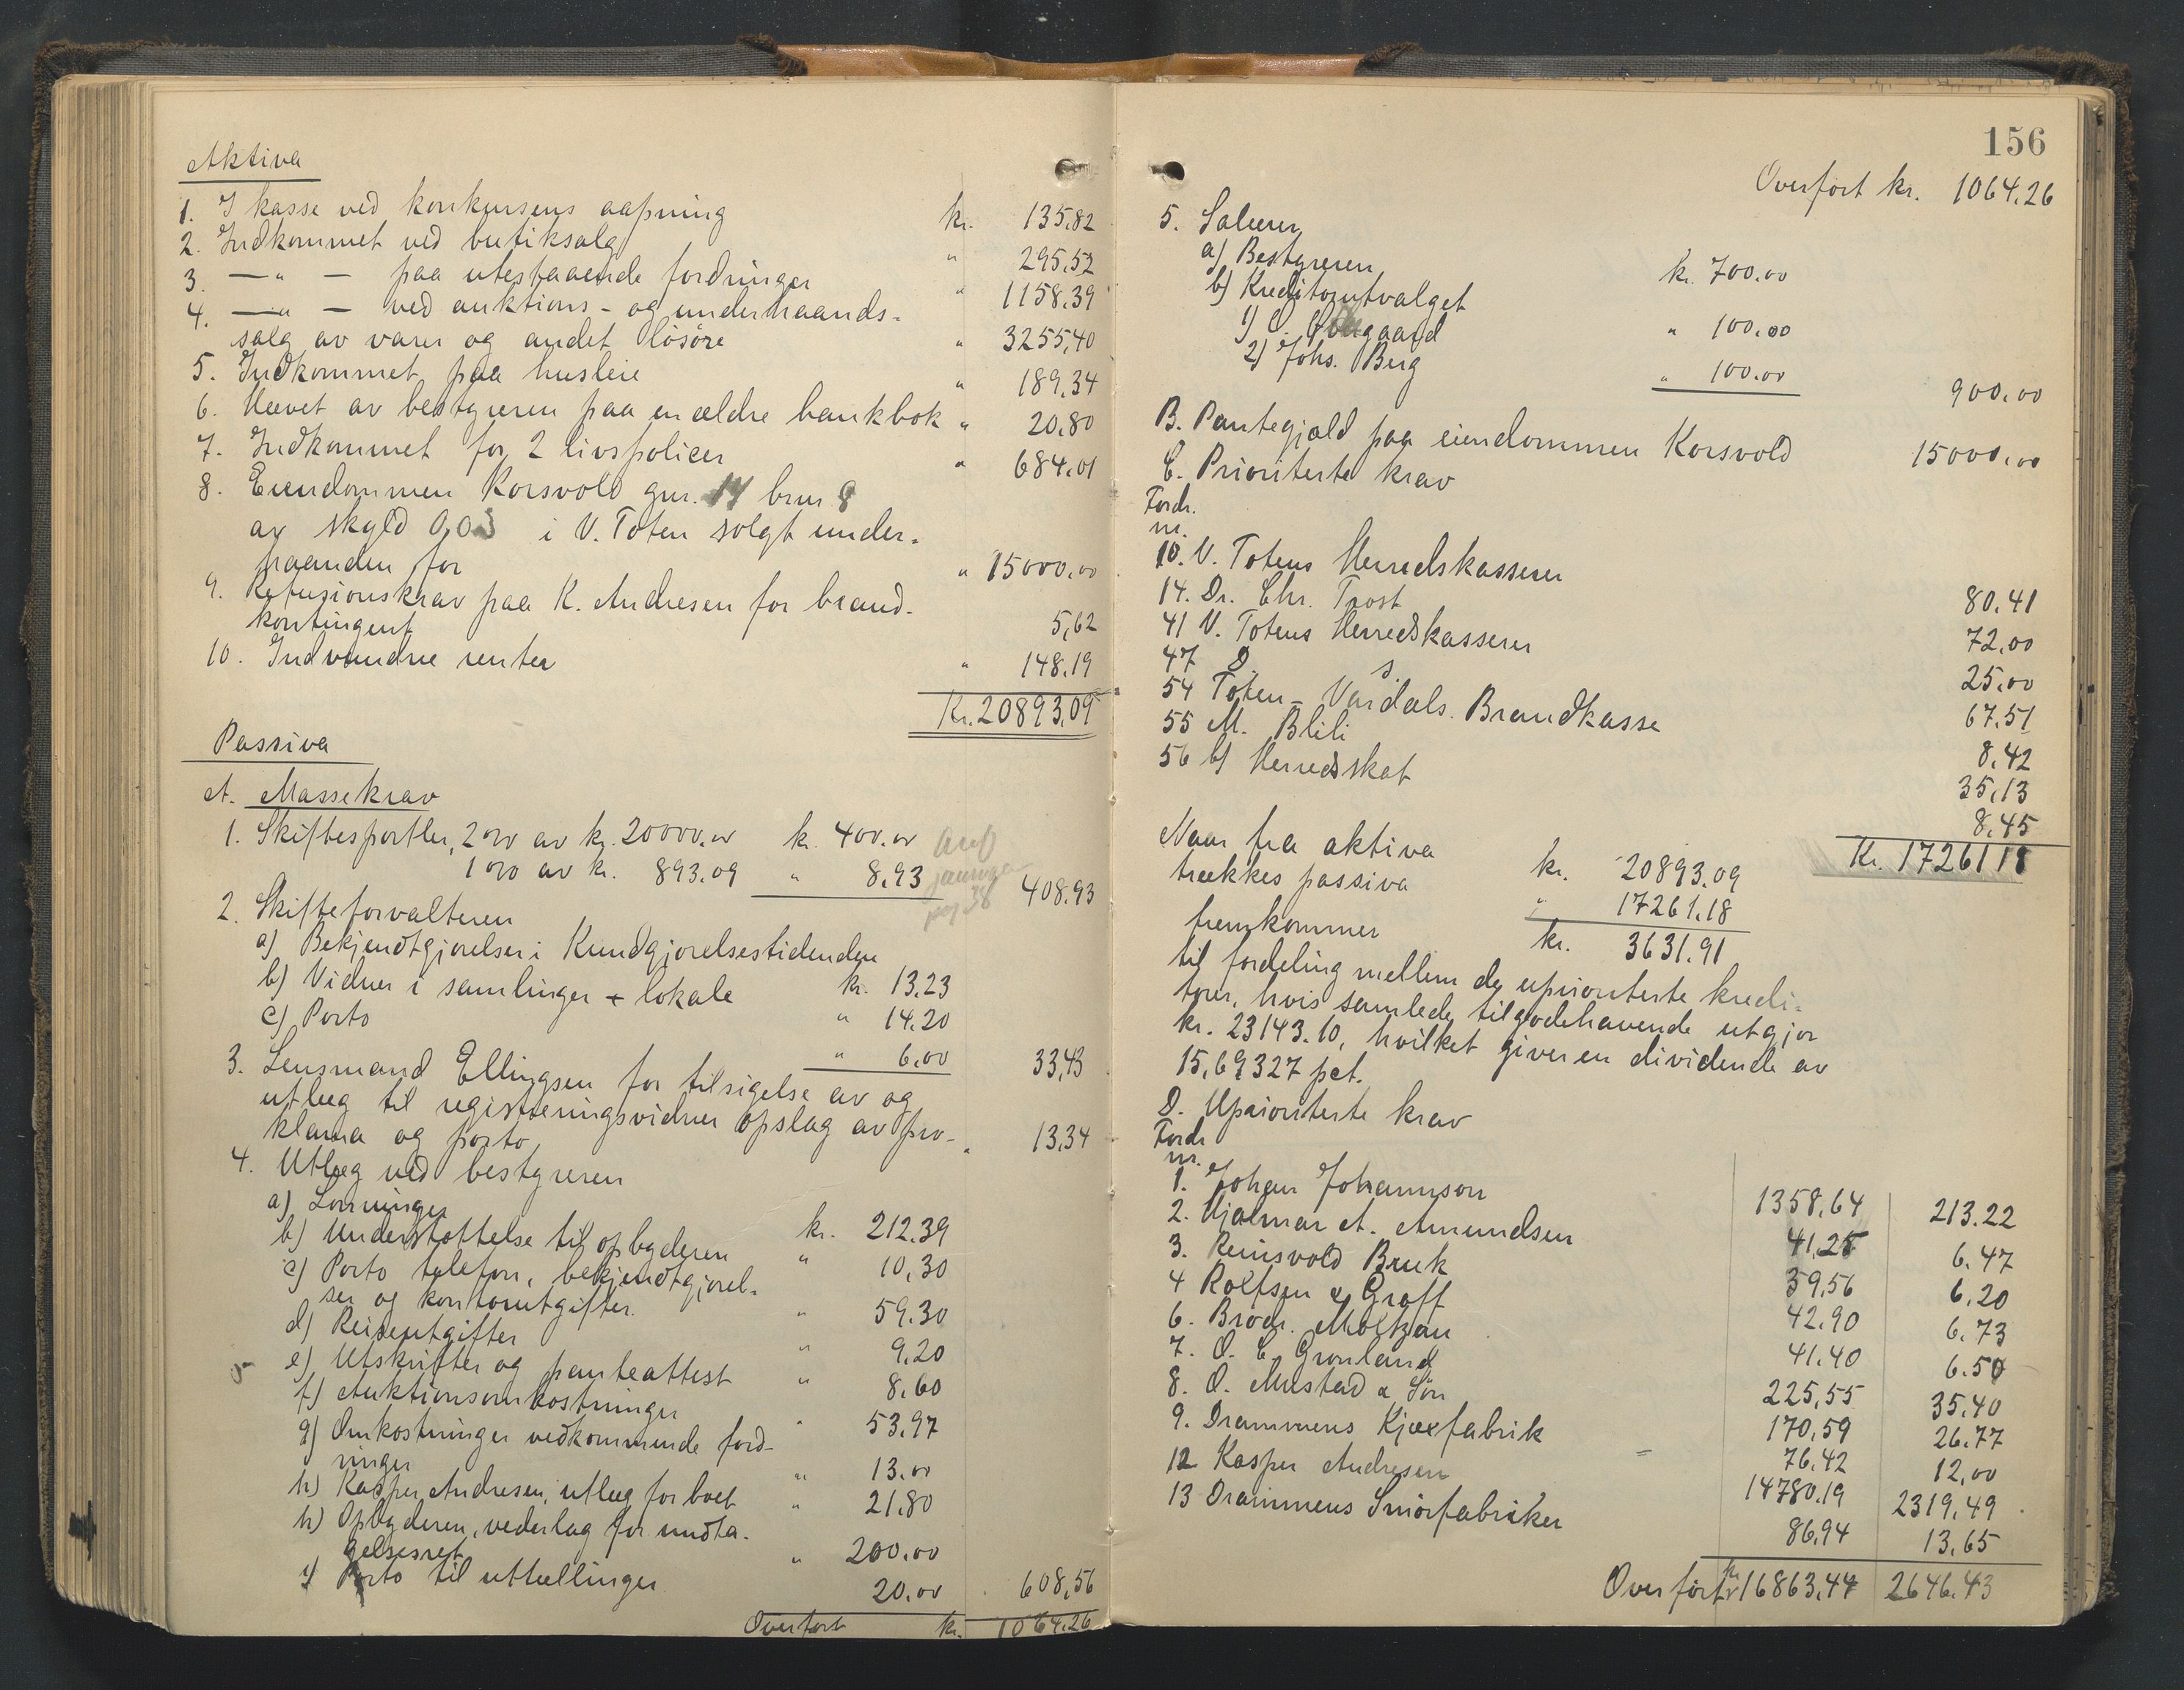 Aktiva
1. I kasse ved konkursens aapning kr. 135,82
2. Indkommet ved butiksalg " 295,52
3. — " — paa utestaaende fordringer " 1158,39
4. — " — ved auktions- og underhaands-
salg av varer og andet lösöre " 3255,40
5. Indkommet paa husleie " 189,34
6. Hævet av bestyreren paa en ældre bankbok " 20,80
7. Indkommet for 2 livspolicer " 684,01
8. Eiendommen Korsvold gnr. 14 brnr 8
av skyld 0,03 i V. Toten solgt under-
haanden for " 15000,00
9. Refusionskrav paa K. Andresen for brand-
kontingent 5,62
10. Indvundne renter " 148,19
Kr. 20893,09
Passiva
A. Massekrav
1. Skiftesportler, 2 o/o av kr. 20000,00 kr. 400,00
1 o/o av kr. 893.09 " 8.93 408.93
pag 38
2. Skifteforvalteren
a) Bekjendtgjörelser i Kundgjörelsestidenden kr. 13,23
b) Vidner i samlinger + lokale " 14.20
c) Porto " 6,00 33,43
3. Lensmand Ellingsen for tilsigelse av og
utlæg til registreringsvidner opslag av pro-
klama og porto " 13,34
4. Utlæg ved bestyreren
a) Lönninger kr. 212.39
b) Understöttelse til opbyderen " 10,30
c) Porto telefon, bekjendtgjörel-
ser og kontorutgifter. " 59.30
d) Reiseutgifter " 9,20
e) Utskrifter og panteattest " 8,60
f) Auktionsomkostninger " 53,97
g) Omkostninger vedkommende ford-
ringer " 13.00
h) Kasper Andresen, utlæg for boet " 21.80
h) Opbyderen, vederlag for undta-
gelsesret " 200.00
i) Porto til utlællinger 20.00 608,56
Overfört kr. 1064.26
156
Overfört kr. 1064,26
5. Salærer
a) Bestyreren kr. 700.00
b) Kreditorutvalget
1) " 100.00
2) Johs. Berg " 100.00 900,00
B. Pantegjæld paa eiendommen Korsvold 15000,00
C. Prioriterte krav
Fordr.
nr.
10. V. Totens Herredskasserer 80.41
14. Dr. Chr. Trost 72,00
41 V. Totens Herredskasserer 25,00
47 D. s. 67.51
54 Toten-Vardals Brandkasse 8.42
55 M. Blili 35,13
56 b) Herredsskat 8.45
Kr. 17261 18
Naar fra aktiva kr. 20893.09
trækkes passiva " 17261.18
fremkommer kr. 3631.91
til fordeling mellem de uprioriterte kredi-
torer, hvis samlede tilgodehavende utgjör
kr. 23143.10, hvilket giver en dividende av
15,69327 pct.
D. Uprioriterte krav
Fordr
nr.
1. Johan Johannson 1358,64 213.22
2. Hjalmar A. Amundsen 41,25 6.47
3. Reinsvold Bruk 39,56 6,20
4 Rolfsen & Graff 42.90 6.73
6. Brödr. Moltzau 41.40 6.50
7. O. C. Grönland 225,55 35.40
8. O. Mustad & Sön 170,59 26.77
9. Drammens Kjæxfabrik 76.42 12,00
12 Kasper Andresen 14780.19 2319.49
13 Drammens Smörfabriker 86,94 13,65
Overfört kr 16863,44 2646.43